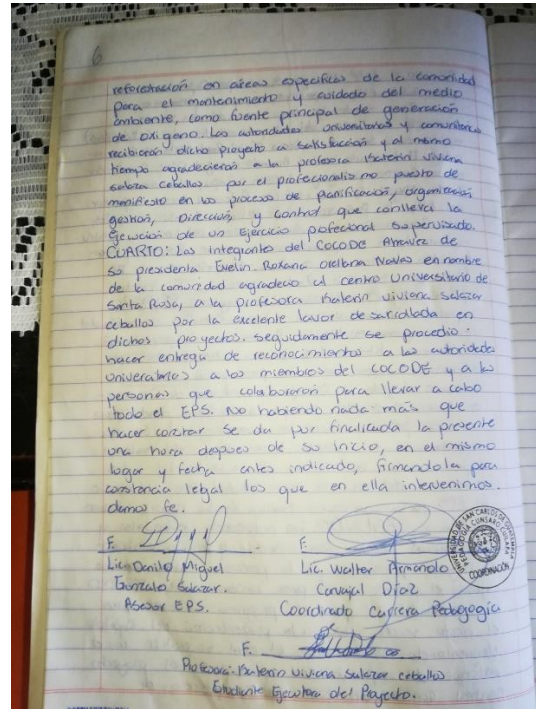 6
reforestación en aéreas especificas de la comunidad
para el mantenimiento y cuidado del medio
ambiente, como fuente principal de generación
de oxigeno. Las autoridades universitarias y comunitarias
recibieron dicho proyecto a satisfacción y al mismo
tiempo agradecieron a la profesora Katerin viviana
salazar ceballos por el profecionalis mo puesto de
manifiesto en los proceso de planificación, organización
gestión, Dirección, y control que conlleva la
Ejecución de un Ejercicio profecional supervisado.
CUARTO: Los integrantes del COCODE Atravez de
su presidenta Evelin Roxana orellana Navas en nombre
de la comunidad agradecio al centro Universitario de
Santa Rosa, a la profesora Katerin viviana salazar
ceballos por la excelente lavor desarrollada en
dichos proyectos. seguidamente se procedio
hacer entrega de reconocimientos a las autoridades
a los miembros del COCODE y a las
personas que colaboraron para llevar a cabo
todo el EPS. No habiendo nada más que
hacer constar se da por finalizada la presente
una hora despues de su inicio, en el mismo
lugar y fecha antes indicado, firmandola para
constancia legal los que en ella intervenimos.
damos fe.
F. F.
Lic. Danilo Miguel Lic. Walter Armando
Gonzalo Salazar. Carvajal Díaz
Asesor EPS. Coordinado Carrera Pedagogía
SAN CARLOS DE GUATEMALA
PEDAGOGIA CUNSARO CUILAPA
COORDINACIÓN
F.
Profesora: Katerin viviana Salazar ceballos
Estudiante Ejecutora del Proyecto.